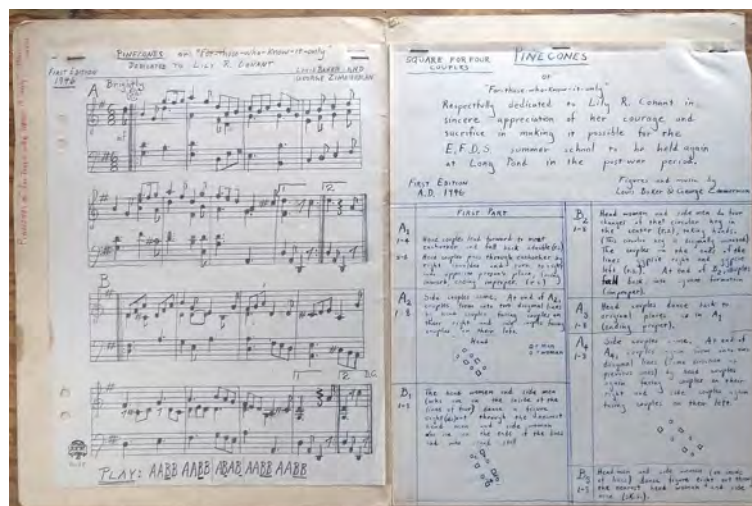 PINECONES or "For-those-who-Know-it-only"
DEDICATED TO LILY R. CONANT
FIRST EDITION
1946
LOUIS BAKER AND
GEORGE ZIMMERMAN
A Brightly
mf
1 2
B
1 2 D.C.
PLAY: AABB AABB ABAB AABB AABB
SQUARE FOR FOUR
COUPLES
PINECONES
or
"For-those-who-Know-it-only"
Respectfully dedicated to Lily R. Conant in
sincere appreciation of her courage and
sacrifice in making it possible for the
E.F.D.S. summer school to be held again
at Long Pond in the post-war period.
FIRST EDITION
A.D. 1946
Figures and music by
Louis Baker & George Zimmerman
FIRST PART
A1
1-4 Head couples lead forward to meet
eachother and fall back
Head couples pass through eachother by
right shoulders and turn to right
in opposite person's place,
A2
1-8
Side couples same. At end of A2,
couples form into two diagonal lines
by head couples facing couples on
their right and side couples facing
couples on their left.
Head
□ = man
○ = woman
B1
1-8
The head women and side men
(who are on the inside of the
lines of four) dance a figure
eight through the nearest
head man and side woman
who are on the ends of the lines
B2
1-8
Head women and side men do four
changes of the circular hey in
the center (r.s.), hands.
(This circular hey is
The couples on the ends of the
lines gypsie right and gypsie
left (r.s.). At end of B2, couples
fall back into square formation
(improper).
A3
1-8
Head couples dance back to
original places as in A1
(ending proper).
A4
1-8
Side couples same. At end of
A4, couples again form into two
diagonal lines
previous ones) by head couples
again facing couples on their
right and side couples again
facing couples on their left.
B3
1-8
Head men and side women (on inside
of lines) dance figure eight
the nearest head woman and side
man